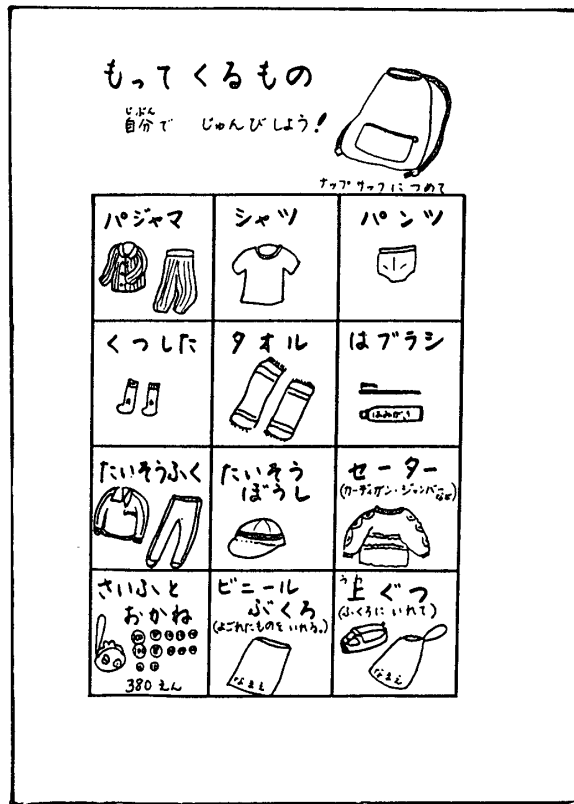 もってくるもの
じぶん
自分で じゅんびしよう!
ナップサックにつめて
パジャマ
シャツ
パンツ
くつした
タオル
はブラシ
はみがき
たいそうふく
たいそう
ぼうし
セーター
(カーディガン・ジャンパーなど)
さいふと
おかね
380えん
ビニール
ぶくろ
(よごれたものをいれる。)
なまえ
うわ
上ぐつ
(ふくろにいれて)
なまえ